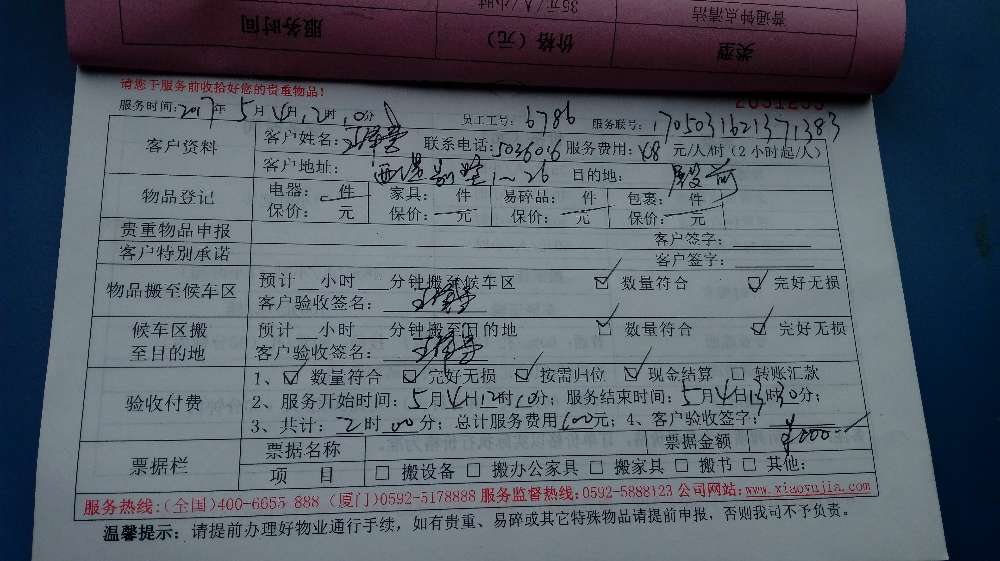 35元/人/小时
普通钟点清洁
服务时间
价格(元)
类型
请您于服务前收拾好您的贵重物品!
服务时间:2017年5月4日12时10分 员工工号:6786 服务联号:170503162137,383
客户资料
客户姓名: 联系电话:5026016 服务费用:48元/人/时(2小时起/人)
客户地址:西堤别墅1~26 目的地:
物品登记
电器: 件 家具: 件 易碎品: 件 包裹: 件
保价: 元 保价: 元 保价: 元 保价: 元
贵重物品申报 客户签字:
客户特别承诺 客户签字:
物品搬至候车区
预计 小时 分钟搬至候车区 ☑ 数量符合 ☑ 完好无损
客户验收签名:
候车区搬至目的地
预计 小时 分钟搬至目的地 ☑ 数量符合 ☑ 完好无损
客户验收签名:
验收付费
1、☑ 数量符合 ☑ 完好无损 ☑ 按需归位 ☑ 现金结算 □ 转账汇款
2、服务开始时间:5月4日12时10分;服务结束时间:5月4日13时30分;
3、共计:2时00分;总计服务费用100元;4、客户验收签字:
票据栏
票据名称 票据金额
项 目 □ 搬设备 □ 搬办公家具 □ 搬家具 □ 搬书 □ 其他:
服务热线:(全国)400-6655-888 (厦门)0592-5178888 服务监督热线:0592-5888123 公司网站:www.xiaoyujia.com
温馨提示:请提前办理好物业通行手续,如有贵重、易碎或其它特殊物品请提前申报,否则我司不予负责。